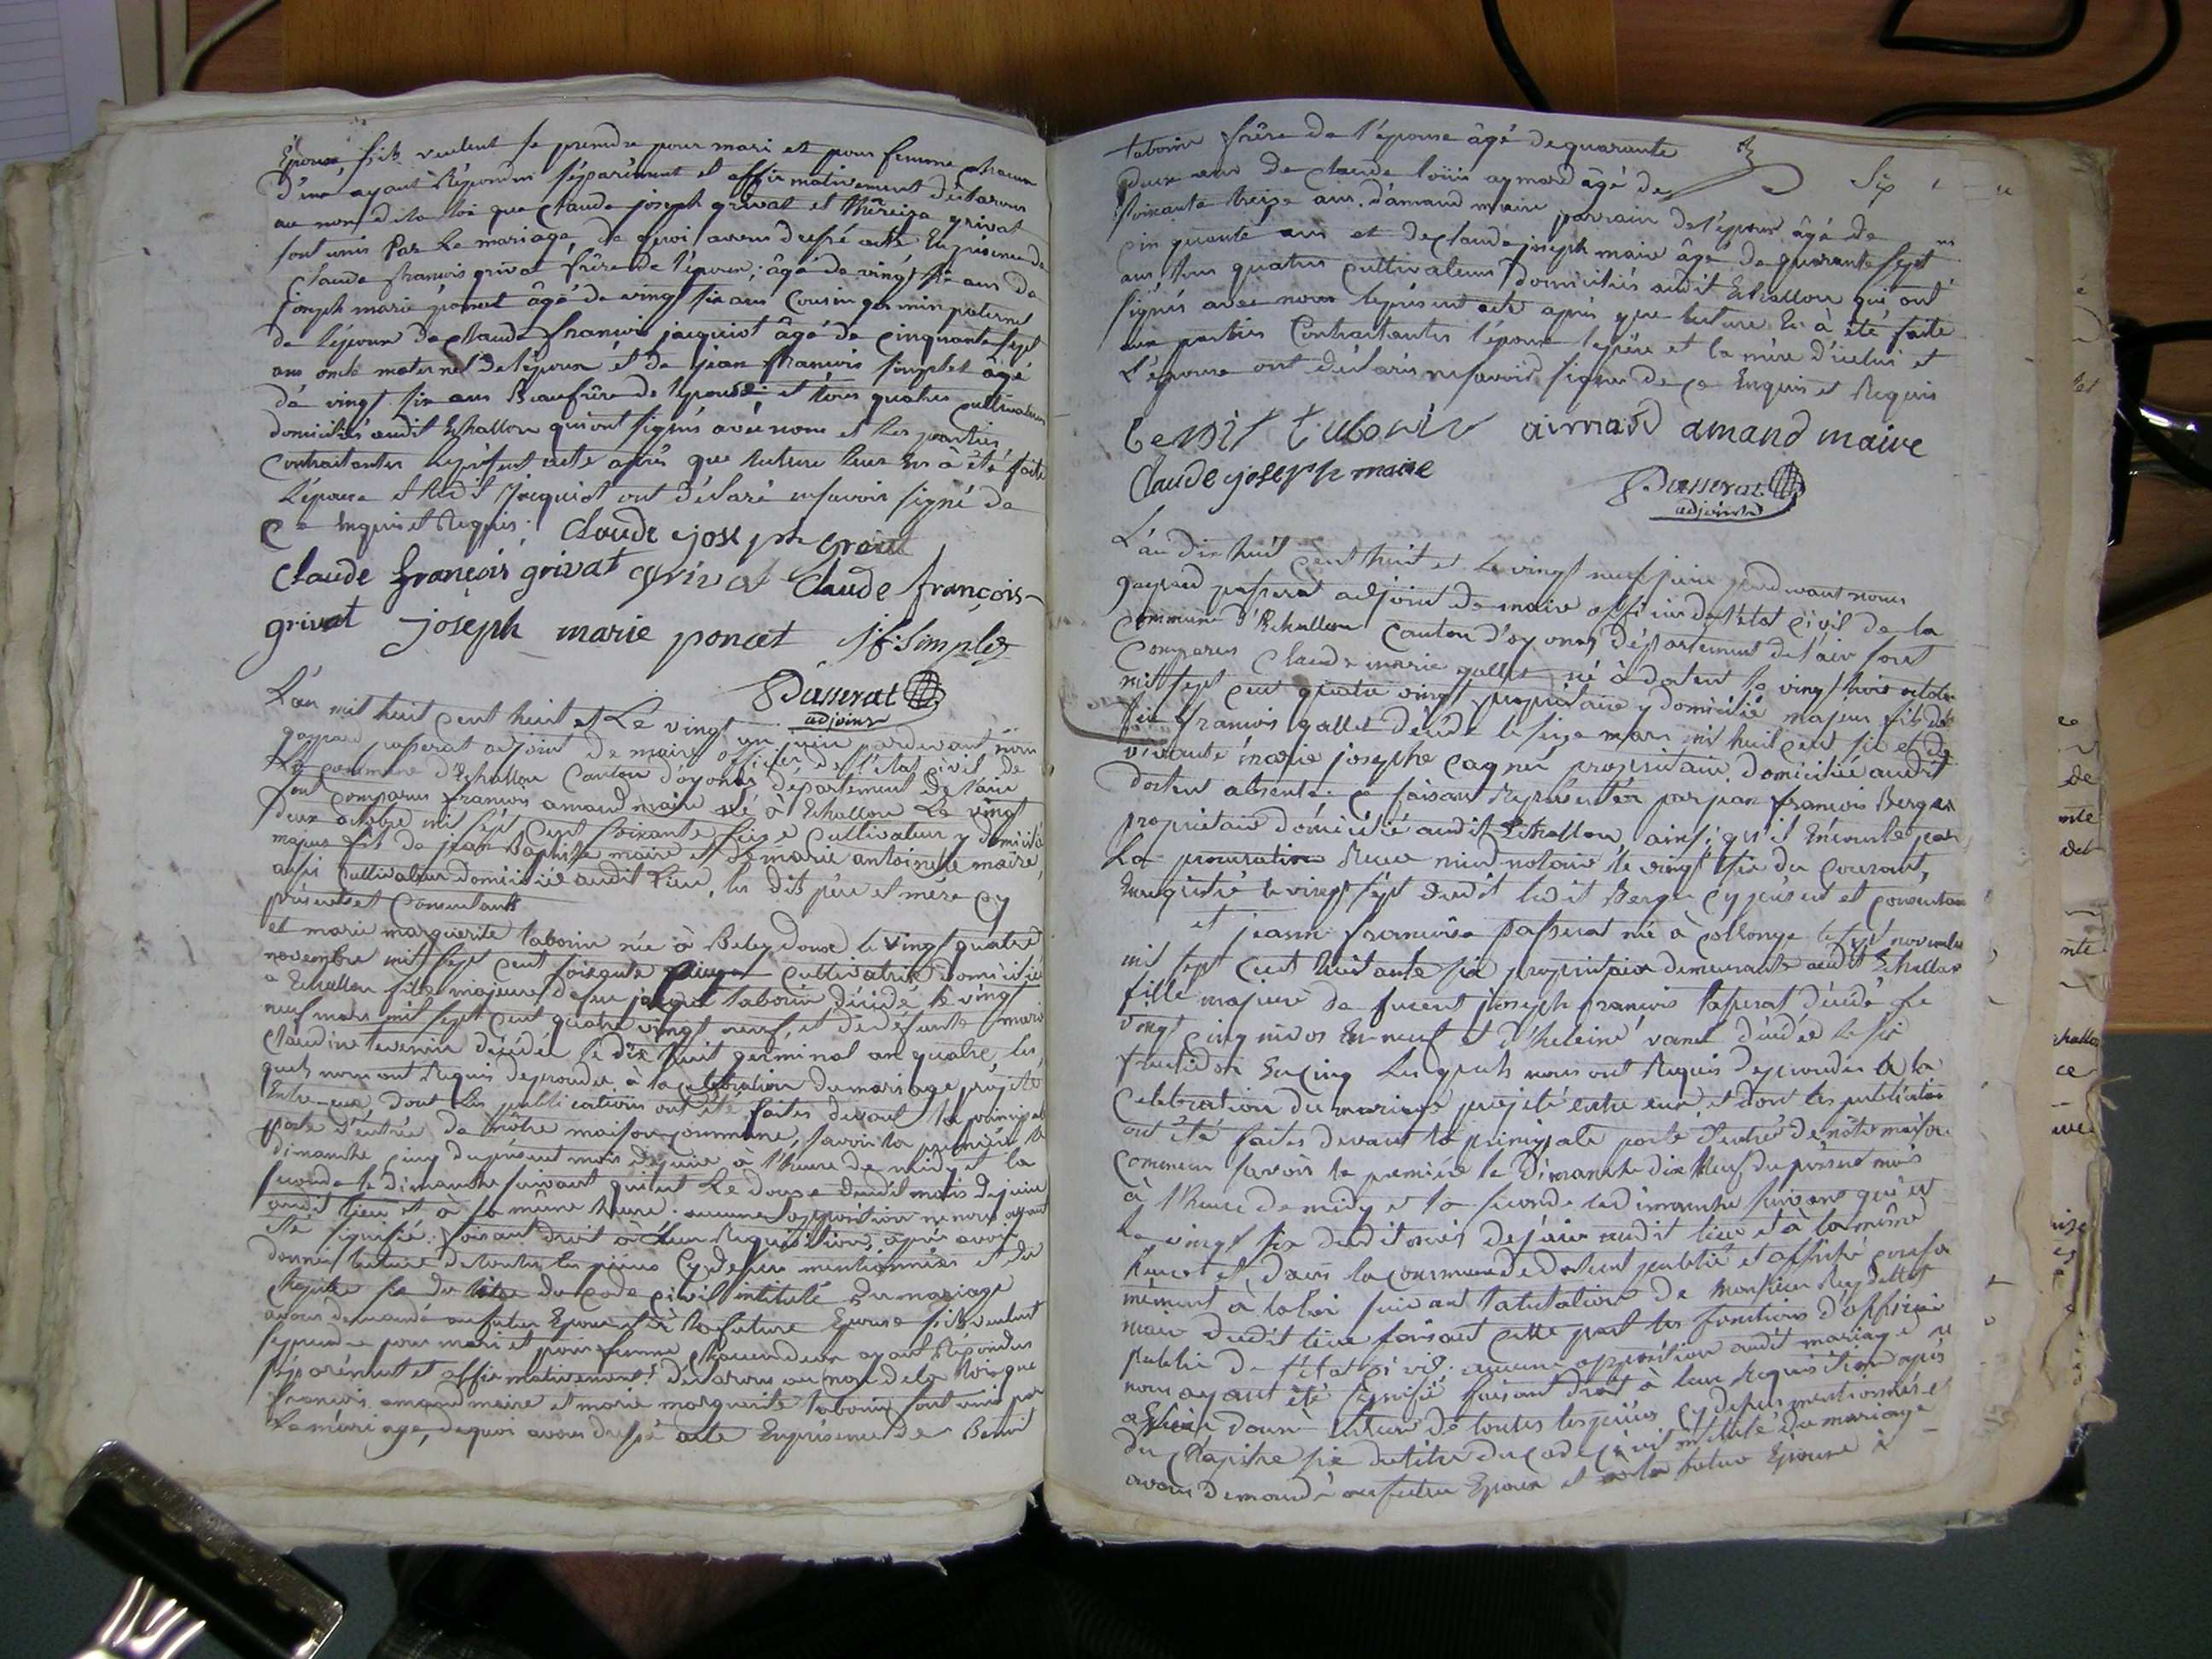 Epouse s'ils veulent se prendre pour mari et pour femme chacun
d'eux ayant répondu séparément et affirmativement déclarons
au nom de la loi que claude joseph grivat et thereise grivat
sont unis Par Le mariage, de quoi avons dressé acte En présence de
Claude francois grivat frère de l'époux, âgé de vingt six ans de
joseph marie poncet âgé de vingt six ans Cousin germin paternel
de l'époux de claude francois jacquiot âgé de cinquante sept
ans oncle maternel de l'épouse et de jean francois simplet agé
de vingt six ans Beaufrère de l'épouse et tous quatre cultivateurs
domiciliés audit Echallon qui ont signés avec nous et les parties
contractantes le présent acte après que lecture leur En à été faite
L'épouse et ledit Jacquiot ont déclaré ne savoir signé de
Ce Enquis et Requis. Claude joseph grivat
Claude françois grivat grivat Claude françois
grivat joseph marie poncet j f Simplet
Passerat
adjoint
L'an mil huit cent huit et Le vingt un juin pardevant nous
gaspard passerat adjoint de maire officier de l'état civil de
La commune d'Echallon Canton d'oyonas département de l'ain
sont comparus francois amand maire né à Echallon Le vingt
deux octobre mil sept cent soixante seize cultivateur y domicilié
majeur fils de jean Baptiste maire et de marie antoinette maire
aussi cultivateur domicilié audit lieu, les dits père et mère cy
présents et Consentants
et marie marguerite tabourin née à Beleydoux le vingt quatre
novembre mil sept cent soixante cultivatrice domiciliée
a Echallon fille majeure de feu jacque tabourin décédé le vingt
neuf mars mil sept cent quatre vingt neuf, et de défunte marie
claudine tevenin décédée le dix huit germinal an quatre les
quels nous ont Requis de procéder à la celebration du mariage projeté
Entre eux dont les publications ont été faites devant la principale
porte d'entrée de nôtre maison commune, savoir la première le
dimanche cinq du présent mois de juin à l'heure de midy et la
seconde le dimanche suivant qui est Le douze dudit mois de juin
audit lieu et à la même heure. aucune opposition ne nous ayant
été signifiée. faisant droit à leur Requisition, après avoir
donné lecture de toutes les pièces cy dessus mentionnées et du
chapitre six du titre du code civil intitulé du mariage
avons demandé au futur Epoux et à la future Epouse s'ils veulent
se prendre pour mari et pour femme chacun deux ayant Répondu
séparément et affirmativement! declarons au nom de la Loi que
francois amand maire et marie marguerite tabourin sont unis par
Le mariage, de quoi avons dressé acte En présence de Benoit
tabourin frère de l'épouse âgé de quarante
deux ans de claude louis aymard âgé de Six
soixante treize ans, d'amand maire parrain de l'époux âgé de
cinquante ans et de claude joseph maire âgé de quarante sept
ans tous quatre cultivateurs domiciliés audit Echallon qui ont
signés avec nous le présent acte après que lecture En à été faite
aux parties Contractantes l'époux le père et la mère d'icelui et
L'épouse ont déclarés ne savoir signer de ce Enquis et Requis
benoit tabourin aimard amand maire
Claude joseph maire
Passerat
adjoint
L'an dix huit cent huit et Le vingt neuf juin pardevant nous
gaspard passerat adjoint de maire officier de l'état civil de la
Commune d'Echallon Canton d'oyonas département de l'ain sont
Comparus Claude marie gallet né à dortent le vingt trois octobre
mil sept cent quatre vingt propriétaire y domicilié majeur fils de
feu francois gallet décédé le seize mars mil huit cent six et de
vivante marie josephe cagnin propriétaire domiciliée audit
dortent absente. Ce faisant Représenter par jean francois Berger
propriétaire domicilié audit Echallon, ainsi qu'il En conste par
La procuration Recue notaire le vingt six du courant,
Enregistrée le vingt sept dudit ledit Berger cy présent et consentant
et jeanne francoise passerat née à collonge le sept novembre
mil sept cent huitante six propriétaire demeurante audit Echallon
fille majeure de feu joseph francois passerat décédé Le
vingt cinq nivos En neuf et d'heleine vanel décédée le six
fructidor En cinq Lesquels nous ont Requis de procéder à la
Celebration du mariage projeté entre eux, et dont les publications
ont été faites devant la principale porte d'entrée de nôtre maison
commune savoir la première le dimanche dix neuf du présent mois
à l'heure de midy et la seconde le dimanche suivant qui est
le vingt six dudit mois de juin audit lieu et à la même
heure et dans la commune de dortent publié et affiché conformé
mément à la loi suivant l'attestation de Monsieur Reydellet
maire dudit lieu faisant cette part les fonctions d'officier
public de l'état civil. aucune opposition audit mariage ne
nous ayant été signifiée faisant droit à leur requisition après
avoir donné lecture de toutes les pièces cy dessus mentionnées et
du Chapitre six du titre du code civil intitulé du mariage
avons demandé au futur Epoux et à la future Epouse